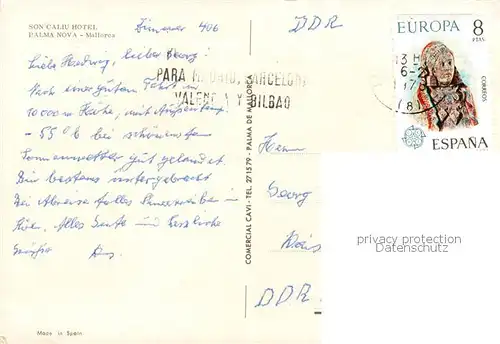 SON CALIU HOTEL
PALMA NOVA - Mallorca
Zimmer 406
Liebe Hedwig, lieber Georg!
Nach einer guten Fahrt in
10 000 m Höhe, mit Außentemp.
- 55° C bei schönstem
Sonnenwetter gut gelandet.
Bin bestens untergebracht
Bei Abreise tolles Schneetreiben in
Köln. Alles Gute und herzliche
Grüße
Made in Spain
PARA MADRID, BARCELONA
VALENCIA Y BILBAO
COMERCIAL CAVI - TEL. 271579 - PALMA DE MALLORCA
DDR
EUROPA 8
PTAS
CORREOS
ESPAÑA
Herrn
Georg
DDR
privacy protection
Datenschutz